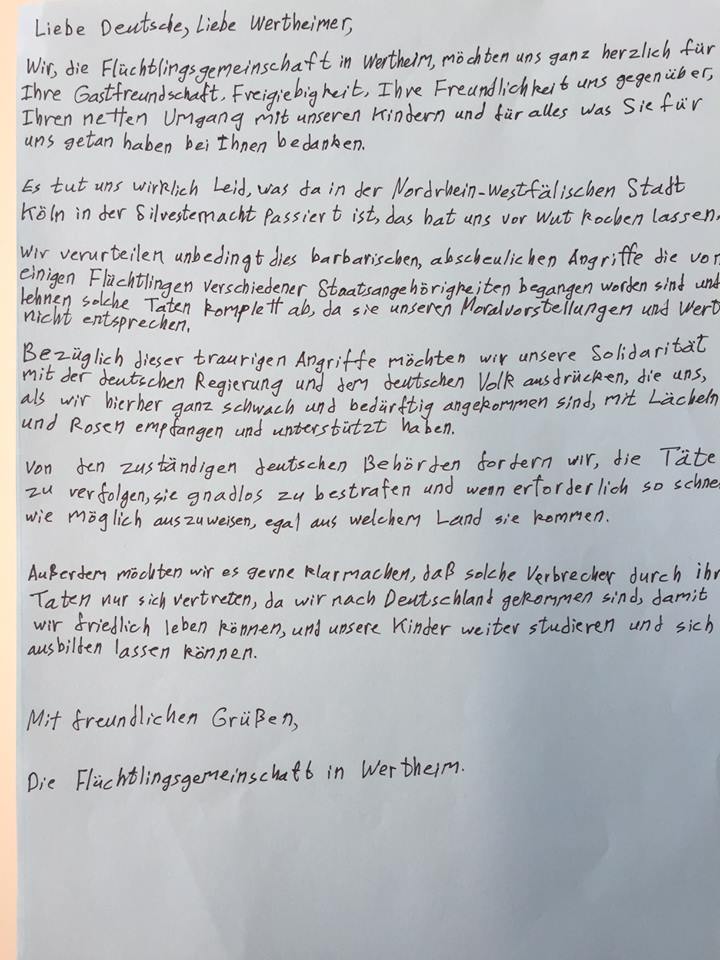 Liebe Deutsche, Liebe Wertheimer,
Wir, die Flüchtlingsgemeinschaft in Wertheim, möchten uns ganz herzlich für
Ihre Gastfreundschaft, Freigiebigkeit, Ihre Freundlichkeit uns gegenüber,
Ihren netten Umgang mit unseren Kindern und für alles was Sie für
uns getan haben bei Ihnen bedanken.
Es tut uns wirklich Leid, was da in der Nordrhein-Westfälischen Stadt
Köln in der Silvesternacht Passiert ist, das hat uns vor Wut kochen lassen.
Wir verurteilen unbedingt dies barbarischen, abscheulichen Angriffe die von
einigen Flüchtlingen verschiedener Staatsangehörigkeiten begangen worden sind und
lehnen solche Taten komplett ab, da sie unseren Moralvorstellungen und Wert
nicht entsprechen.
Bezüglich dieser traurigen Angriffe möchten wir unsere Solidarität
mit der deutschen Regierung und dem deutschen Volk ausdrücken, die uns,
als wir hierher ganz schwach und bedürftig angekommen sind, mit Lächeln
und Rosen empfangen und unterstützt haben.
Von den zuständigen deutschen Behörden fordern wir, die Täte
zu verfolgen, sie gnadlos zu bestrafen und wenn erforderlich so schne
wie möglich auszuweisen, egal aus welchem Land sie kommen.
Außerdem möchten wir es gerne klarmachen, daß solche Verbrecher durch ihr
Taten nur sich vertreten, da wir nach Deutschland gekommen sind, damit
wir friedlich leben können, und unsere Kinder weiter studieren und sich
ausbilden lassen können.
Mit freundlichen Grüßen,
Die Flüchtlingsgemeinschaft in Wertheim.